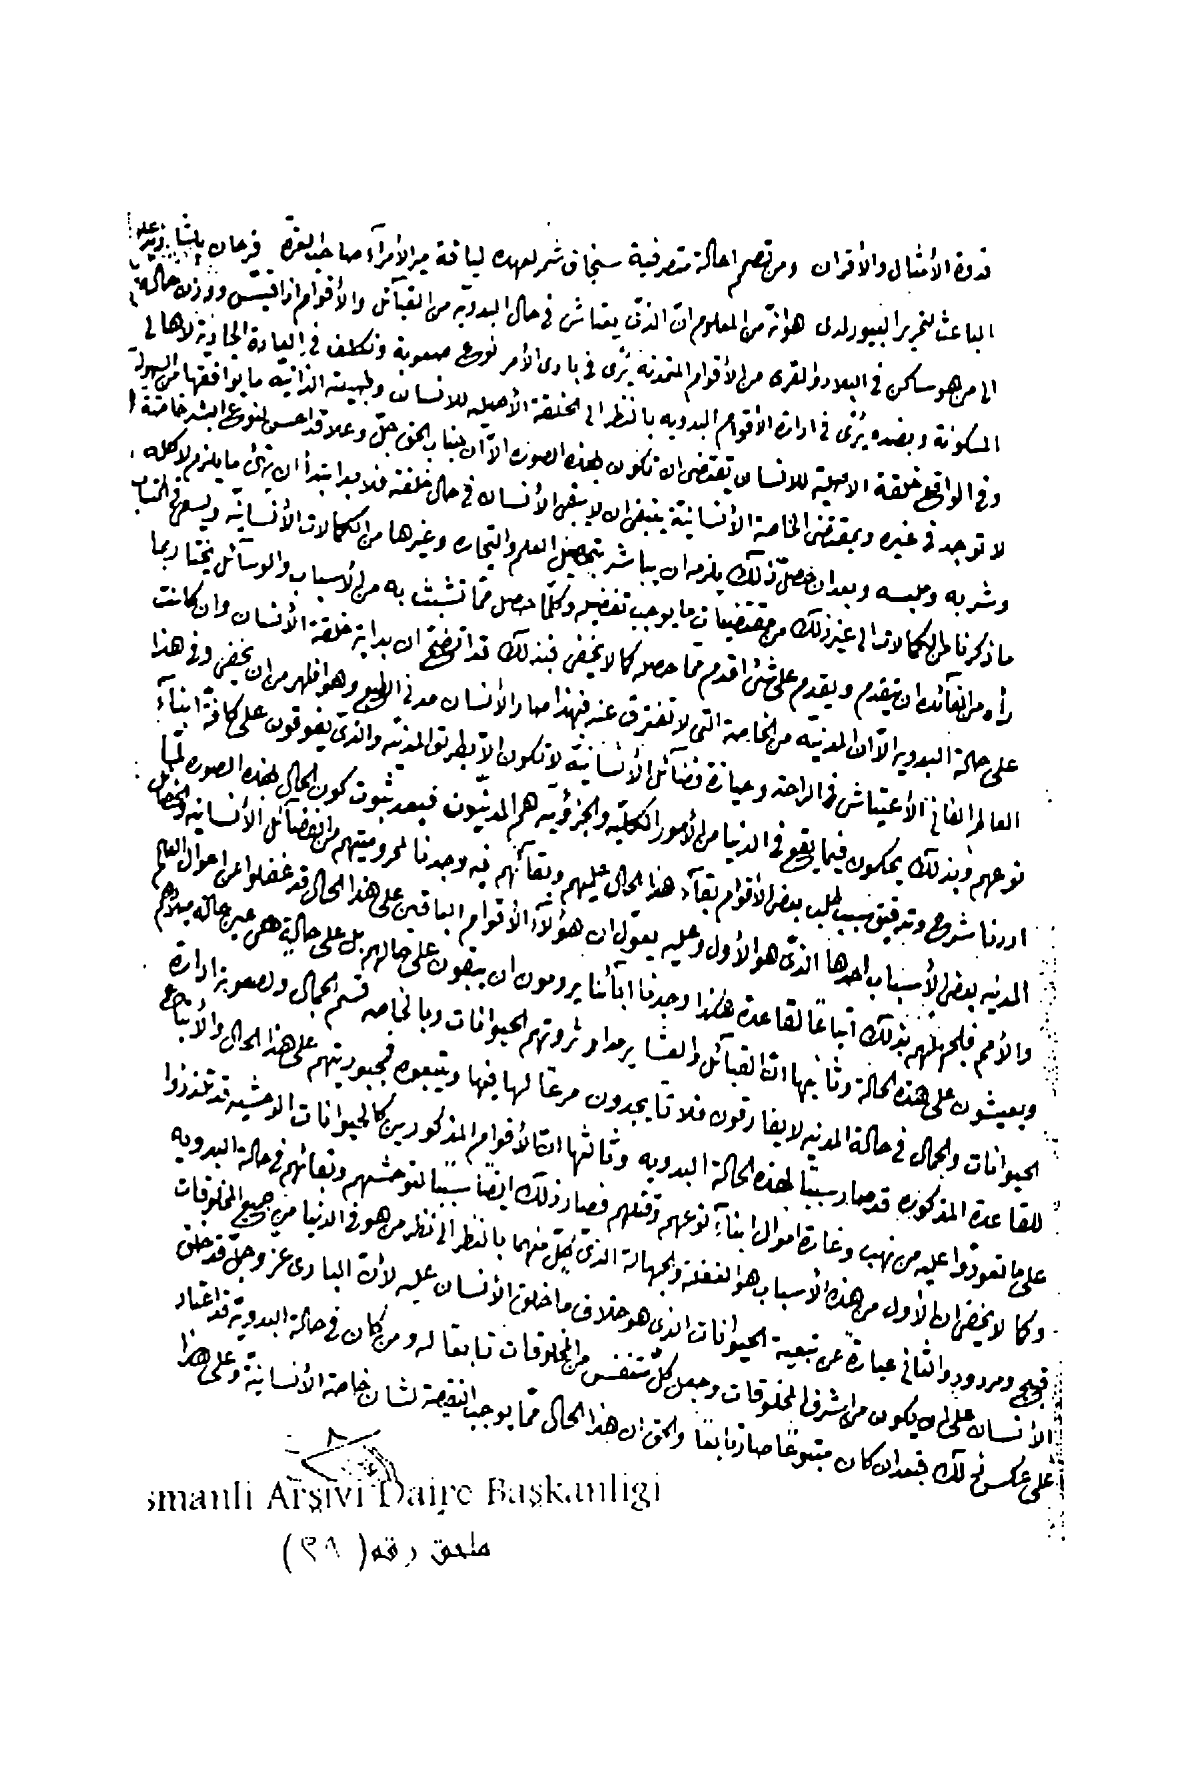 قدوة الأمثال والأقران ومن تصمم احالة متصرفية سنجاق شمر لعهده لياقة ميرالأمرآء صاحب العزه فرحان پاشا زيد علوه
الباعث لتحرير البيورلدى هو انه من المعلوم ان الذى يعتاش فى حال البدويه من القبآئل والأقوام اذا قيس ووزن حاله
الى من هو ساكن فى البلاد والقرى من الأقوام المتمدنه يرى فى بادى الأمر نوع صعوبة وتكلف فى العادة الجاذبة لاهالى
المسكونة وبضده يُرى فى ادارة الأقوام البدويه بالنظر الى الخلقة الأصليه للانسان وطبيعته الذاتيه ما يوافقها من السهولة
وفى الواقع خلقة الاصلية للانسان تقتضى ان تكون بهذه الصوره الّا ان جناب الحق جلّ وعلا قد احسن لنوع البشر خاصّة
لا توجد فى غيره وبمقتضى الخاصة الأنسانية ينبغى ان لا يبقى الأنسان فى حال خلقته فلا بد ابتدأ ان يهئ ما يلزم لاكله
وشربه وملبسه وبعد ان حصل ذلك يلزمه ان يباشر بتحصيل العلم والتجاره وغيرها من الكمالات الأنسانيه ويسعى فى اكتساب
ما ذكرنا من الكمالات الى غير ذلك من مقتضيات ما يوجب تفضيله وكلما حصل مما تشبث به من الأسباب والوسآئل يختار بما
رأه من الفآئده ان يتقدم ويقدم على شئ اقدم مما حصله كما لا يخفى فبذلك قد اتضح ان بداية خلقة الأنسان وان كانت
على حالة البدويه الّا ان المدنيّه من الخاصة التى لا تفترق عنه فبهذا صار الأنسان مدنى الطبع وهو اظهر من ان يخفى وفى هذا
العالم الفانى الأعتياش فى الراحة وحيازة فضآئل الأنسانية لا تكون الّا بطريق المدنيّه والذى يفوقون على كافة ابنآء
نوعهم وبذلك يحكمون فيما يقع فى الدنيا من الأمور الكلّيه والجزؤيّه هم المدنيّون فبعد ثبوت كون الحال بهذه الصوره لمّا
اردنا شروح وتدقيق سبب طلب بعض الأقوام بقآء هذا الحال عليهم وبقآئهم فيه وجدنا لمحروميتهم من الفضآئل الأنسانيه والخصائل
المدنيه بعض الأسباب احدها الذى هو الأول وعليه يعوّل ان هؤلآء الأقوام الباقين على هذا الحال قد غفلوا عن احوال العالم
والأمم فلجهلهم بذلك اتباعًا لقاعدة هكذا وجدنا ابآئنا يرومون ان يبقون على حالهم بل على حالة هى عين حالة ميلادهم
ويعيشون على هذه الحالة وثانيها ان القبآئل والعشاير مدار ثروتهم الحيوانات وبالخاصه قسم الجمال ولصعوبة ادارة
الحيوانات والجمال فى حالة المدنيه لا يفارقون فلاتا يجدون مرعًا لها فيها ويتبعوه فمجبوريتهم على هذا الحال والأتباع
للقاعدة المذكوره قد صار سببًا لهذه الحالة البدويه وثالثها ان الأقوام المذكورين كالحيوانات الوحشيه قد تلذذوا
على ما تعوّدوا عليه من نهب وغارة اموال ابنآء نوعهم وقتلهم فصار ذلك ايضًا سببًا لتوحشهم وبقائهم فى حالة البدويه
وكما لا يخفى ان الأول من هذه الأسباب هو الغفلة والجهالة الذى كلّ منهما بالنظر الى نظر من هو فى الدنيا من جميع المخلوقات
قبيح ومردود والثانى عبارة عن تبعية الحيوانات الذى هو خلاف ما خلق الأنسان عليه لأن البارى عز وجلّ قد خلق
الأنسان على ان يكون من اشرف المخلوقات وجعل كلّ متنفس من المخلوقات تابعا له ومن كان فى حالة البدوية قد اعتاد
على عكس ذلك فبعد ان كان متبوعًا صار تابعًا والحق ان هذا الحال ممّا يوجب النقيصة لشان خاصة الأنسانية وعلى هذا
smanli Arşivi Daire Başkanligi
ملحق رقم (٢٨)